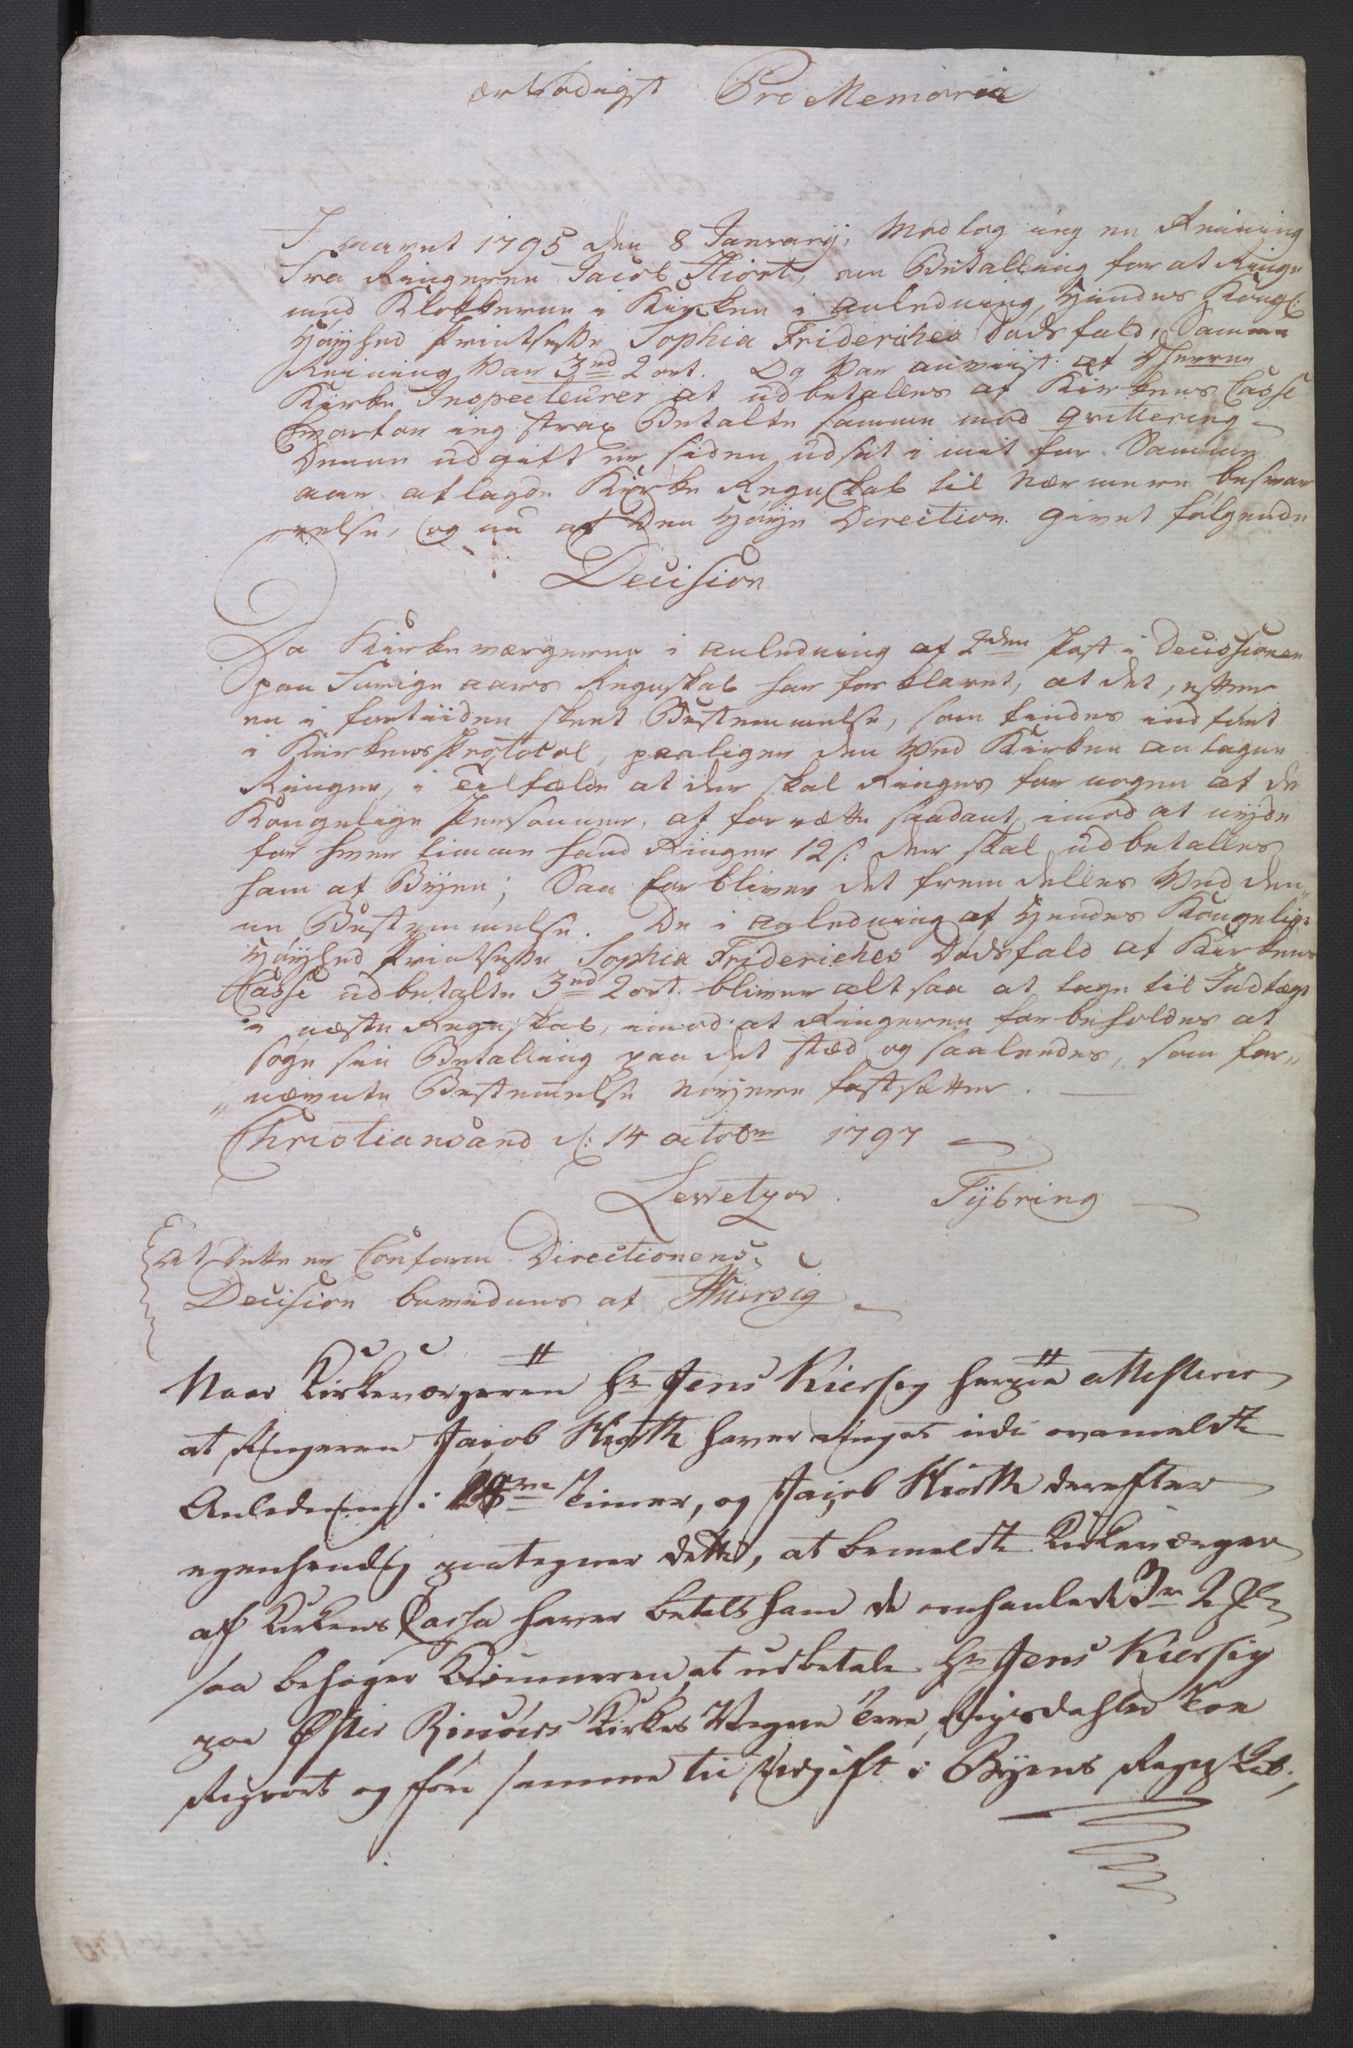 ærbødigst Pro Memoria
I aaret 1795 den 8 Januarij, Modtog ieg en Reining
fra Ringeren Jacob Hiort, om Betalling for at Ringe
med Klokkerne i Kirken i anledning Hendes Kongl:
Høyhed Printsesse Sophia Friderihes Dødsfald, Samme
Reining Var 3 rd 2 ort. Og Var anvist af Herrne
Kirke Inspecteurer at udbetalles af Kirkens Casse
hvorfor ieg strax Betalte samme mod qvittering
Denne udgift er siden udsat i mit for Samme
aar aflagde Kirke Regnskab til nærmere besvar
relse, og nu af den Høye Direction givet følgende
Decision
Da Kirkeværgerne i anledning af 2den Post i Decissionen
paa forige aars Regnskab har forklaret, at det, efter
en i fortiiden skeet Bestemmelse, som findes indført
i Kirkens Protocol, paaligger den Ved Kirken antagne
Ringer, i Tilfælde at der skal Ringes for nogen af de
Kongelige Personner, at forrætte saadant, imod at nyde
for hver timme hand Ringer 12 s: der skal udbetalles
ham af Byen; Saa forbliver det fremdelles Ved den,,
ne Bestemmelse. De i anledning af Hendes Kongelige
Høyhed Printsesse Sophia Frideriches Dødsfald af Kirkens
Casse udbetalte 3 rd 2 ort. bliver altsaa at tage til Indtægt
i næste Regnskab, imod at Ringeren forbeholdes at
søge sin Betalling paa det stæd og saaledes, som for,,
,,nævnte Bestemelse nøyere fastsætter.
Christiansand d: 14 octobr 1797
Levetzow. Tybring
At Dette er Conform Directionens
Decision bevidnes af Kiersig
Naar Kirkeværgeren Hr Jens Kiersig herpaa attesterer
at Ringeren Jacob Hiorth haver ringet udi ovenmeldte
Anledning i Timer, og Jacob Hiorth derefter
egenhendig paategner dette, at bemeldte Kirkeværger
af Kirkens Cassa haver betalt ham de omhandlede 3 rd 2 ort
saa behager Kæmmereren, at udbetale Hr Jens Kiersig
paa Øster Riisøers Kirkes Vegne Tree Rigsdahler Toe
Rigsort og føre samme til Udgift i Byens Regnskab.,